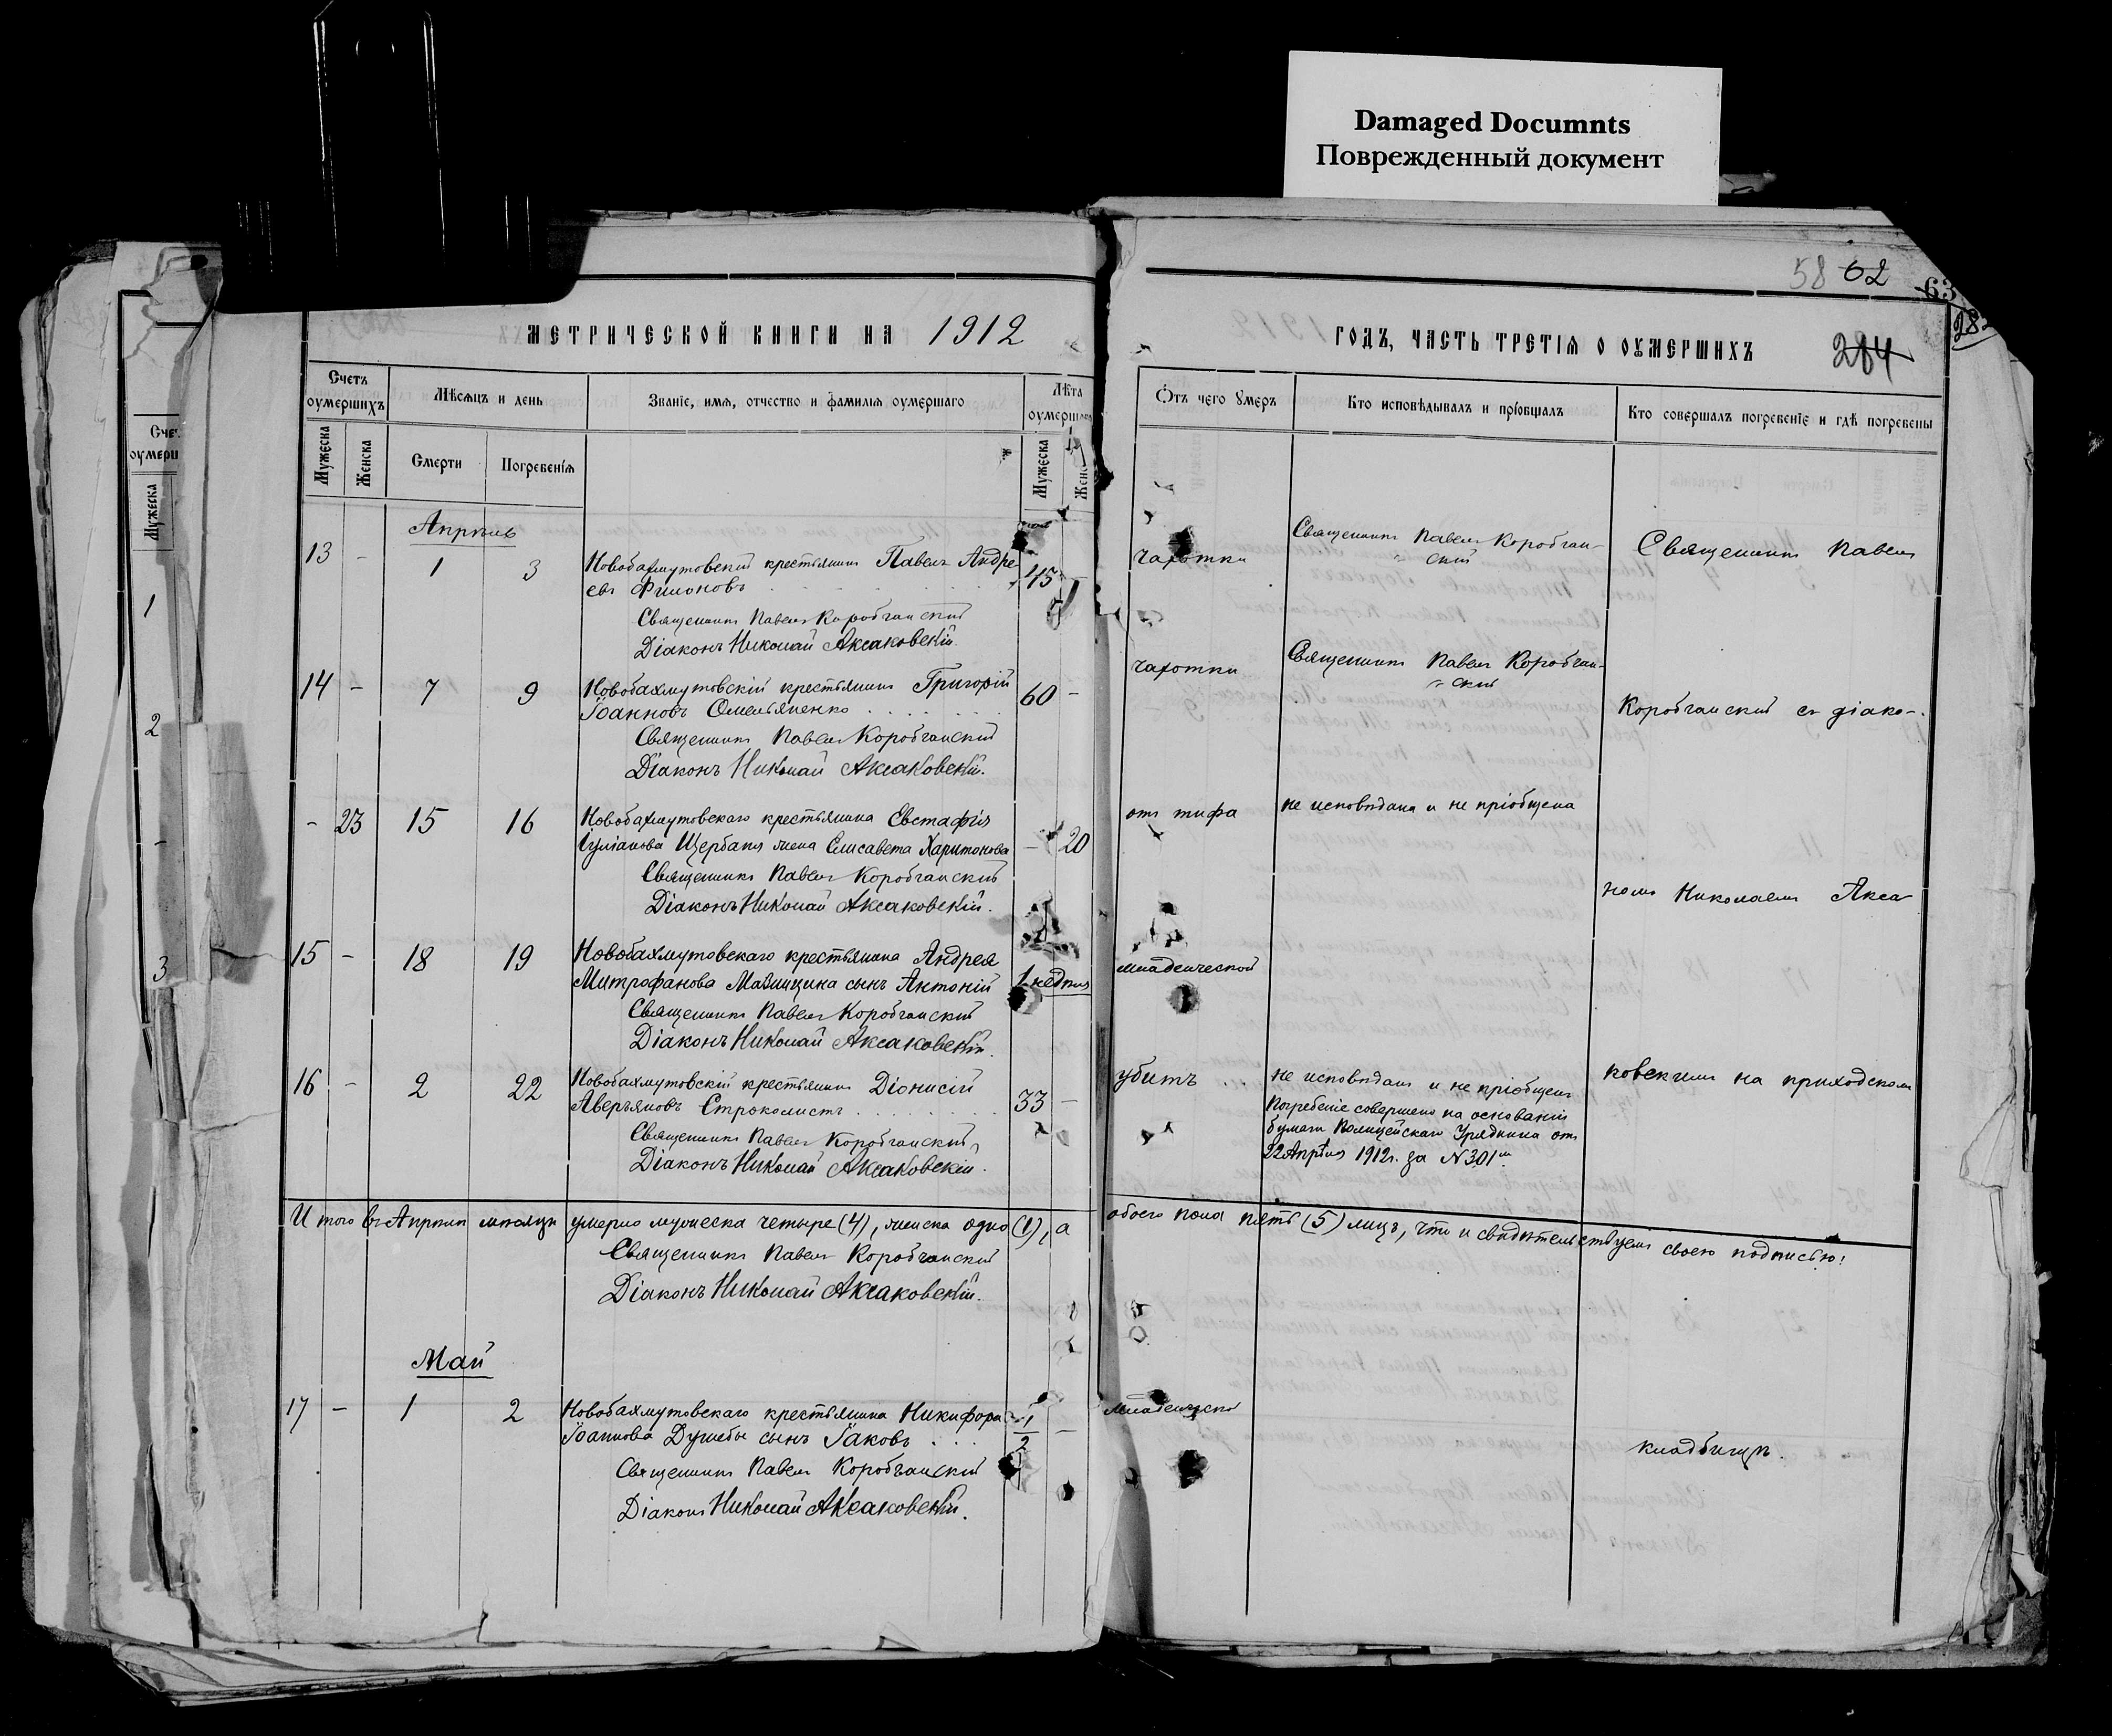 Damaged Documnts
Поврежденный документ
58 62
63
284
МЕТРИЧЕСКОЙ КНИГИ НА 1912
ГОДЪ, ЧАСТЬ ТРЕТІЯ О ОУМЕРШИХЪ
Счетъ оумершихъ
Мужеска
Женска
Мѣсяцъ и день
Смерти
Погребенія
Званіе, имя, отчество и фамилія оумершаго
Лѣта
Мужеска
Ѿтъ чего оумеръ
Кто исповѣдывалъ и пріобщалъ
Кто совершалъ погребеніе и гдѣ погребены
Счет
оумерш
Мужеска
1
2
3
Апрѣль
13 - 1 3 Новобахмутовскій крестьянинъ Павелъ Андре
евъ Филоновъ 45 -
Священникъ Павелъ Коробчанскій
Діаконъ Николай Аксаковскій.
чахотки
Священникъ Павелъ Коробчан-
скій
Священникъ Павелъ
14 - 7 9 Новобахмутовскій крестьянинъ Григорій
Іоанновъ Омельяненко 60 -
Священникъ Павелъ Коробчанскій
Діаконъ Николай Аксаковскій.
чахотки
Священникъ Павелъ Коробчан-
скій
Коробчанскій съ діако-
- 23 15 16 Новобахмутовскаго крестьянина Евстафія
Іуліанова Щербаня жена Елисавета Харитонова - 20
Священникъ Павелъ Коробчанскій
Діаконъ Николай Аксаковскій.
отъ тифа
не исповѣдана и не пріобщена
номъ Николаемъ Акса
15 - 18 19 Новобахмутовскаго крестьянина Андрея
Митрофанова сынъ Антоній 1 недѣля
Священникъ Павелъ Коробчанскій
Діаконъ Николай Аксаковскій.
младенческой
16 - 2 22 Новобахмутовскій крестьянинъ Діонисій
Аверьяновъ Строколистъ 33 -
Священникъ Павелъ Коробчанскій
Діаконъ Николай Аксаковскій.
убитъ
не исповѣданъ и не пріобщенъ
Погребеніе совершено на основаніи
бумаги Полицейскаго Урядника отъ
22 Апрѣля 1912 г. за № 301м.
ковскимъ на приходскомъ
И того въ Апрѣлѣ мѣсяцѣ умерло мужеска четыре (4), женска одно (1), а обоего пола пять (5) лицъ, что и свидѣтельствуемъ своею подписью:
Священникъ Павелъ Коробчанскій
Діаконъ Николай Аксаковскій.
Май
17 - 1 2 Новобахмутовскаго крестьянина Никифора
Іоаннова Дужебы сынъ Іаковъ 1/2 -
Священникъ Павелъ Коробчанскій
Діаконъ Николай Аксаковскій.
кладбищѣ.